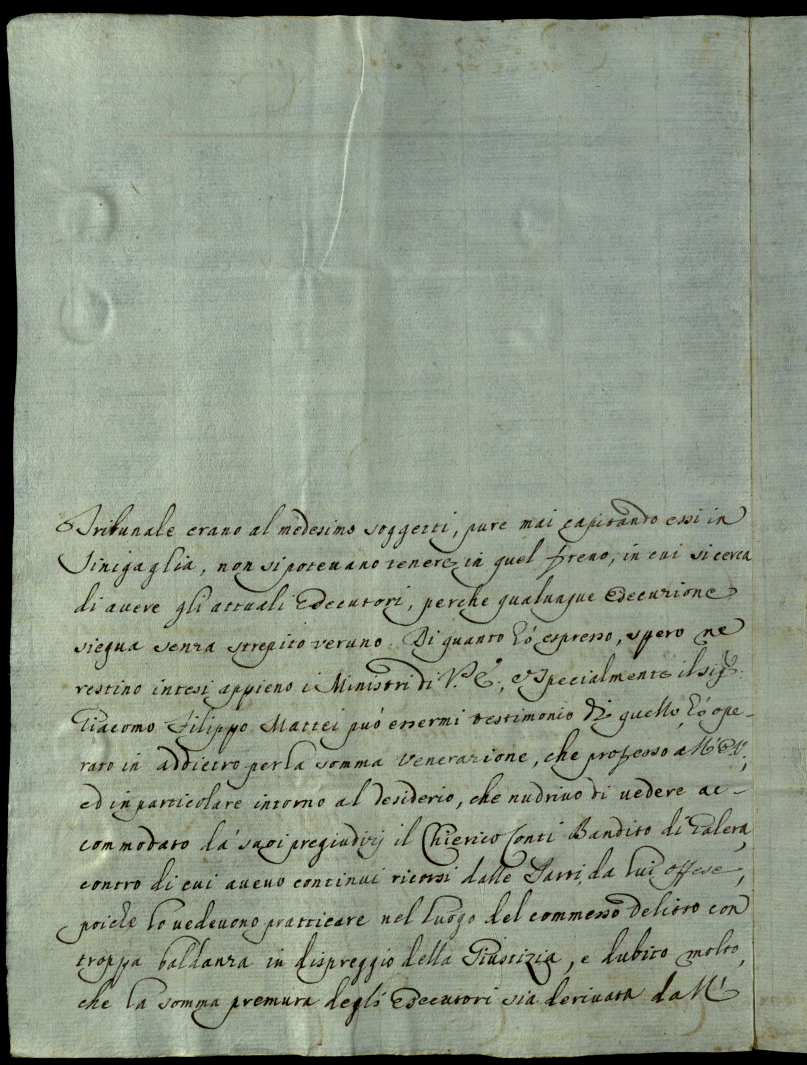 Tribunale erano al medesimo soggetti, pure mai capitando essi in
Sinigaglia, non si potevano tenere in quel freno, in cui si cerca
di avere gli attuali Esecutori, perche qualunque esecuzione
siegua senza strepito veruno. Di quanto hò espresso, spero ne
restino intesi appieno i Ministri di V. E., e specialmente il Sig.
Giacomo Filippo Mattei può essermi testimonio di quello, hò ope-
rato in addietro per la somma venerazione, che professo a
ed in particolare intorno al desiderio, che nudrivo di vedere ac-
commodato da' suoi pregiudizj il Chierico Conti Bandito di Galera,
contro di cui avevo continui ricorsi dalle Parti da lui offese,
poiche lo vedevono pratticare nel luogo del commesso delitto con
troppa baldanza in dispreggio della Giustizia, e dubito molto,
che la somma premura degli Esecutori sia derivata da